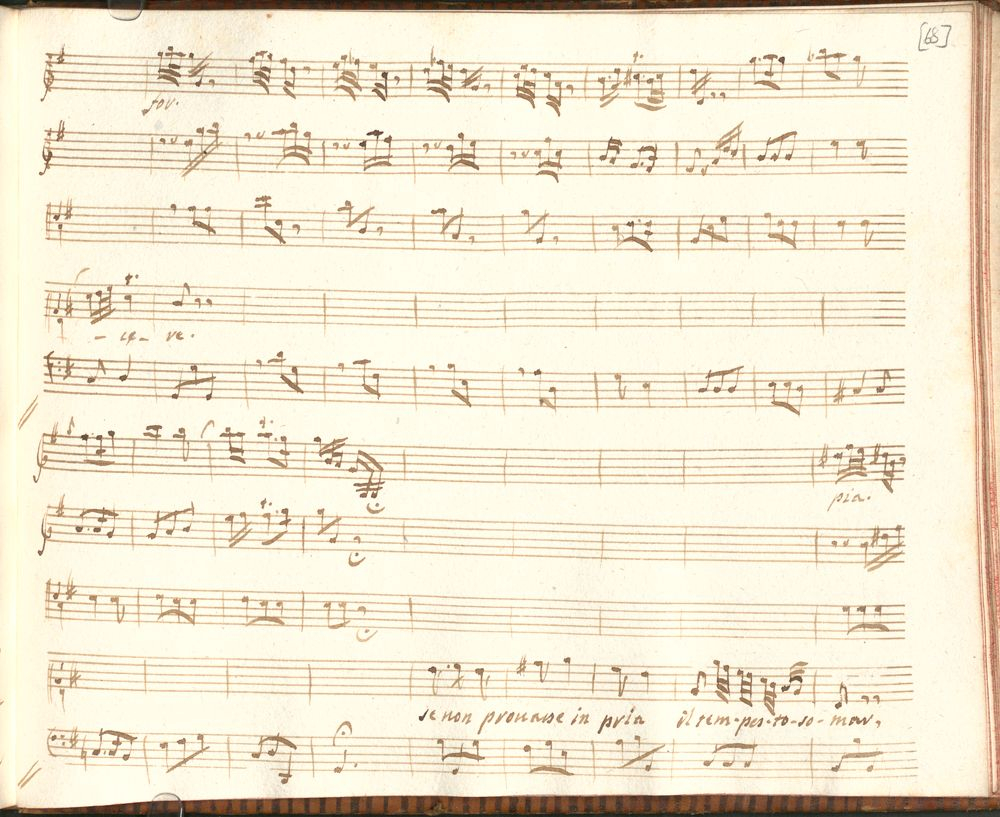 [68]
for.
- ce - ve.
pia.
se non provasse in pria il tem-pes-to-so-mar,